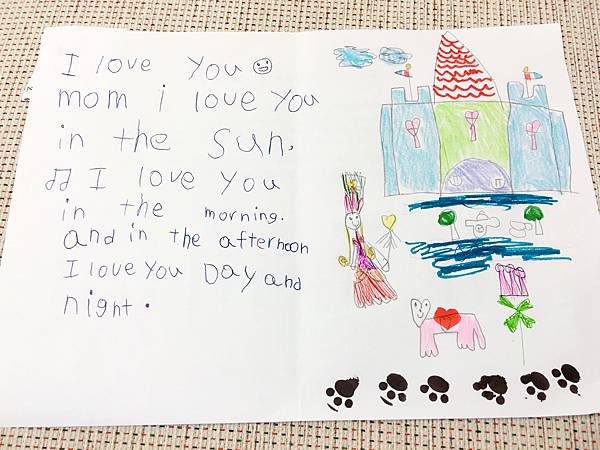 I love you
mom i love you
in the sun.
I love you
in the morning.
and in the afternoon
I love you Day and
night.